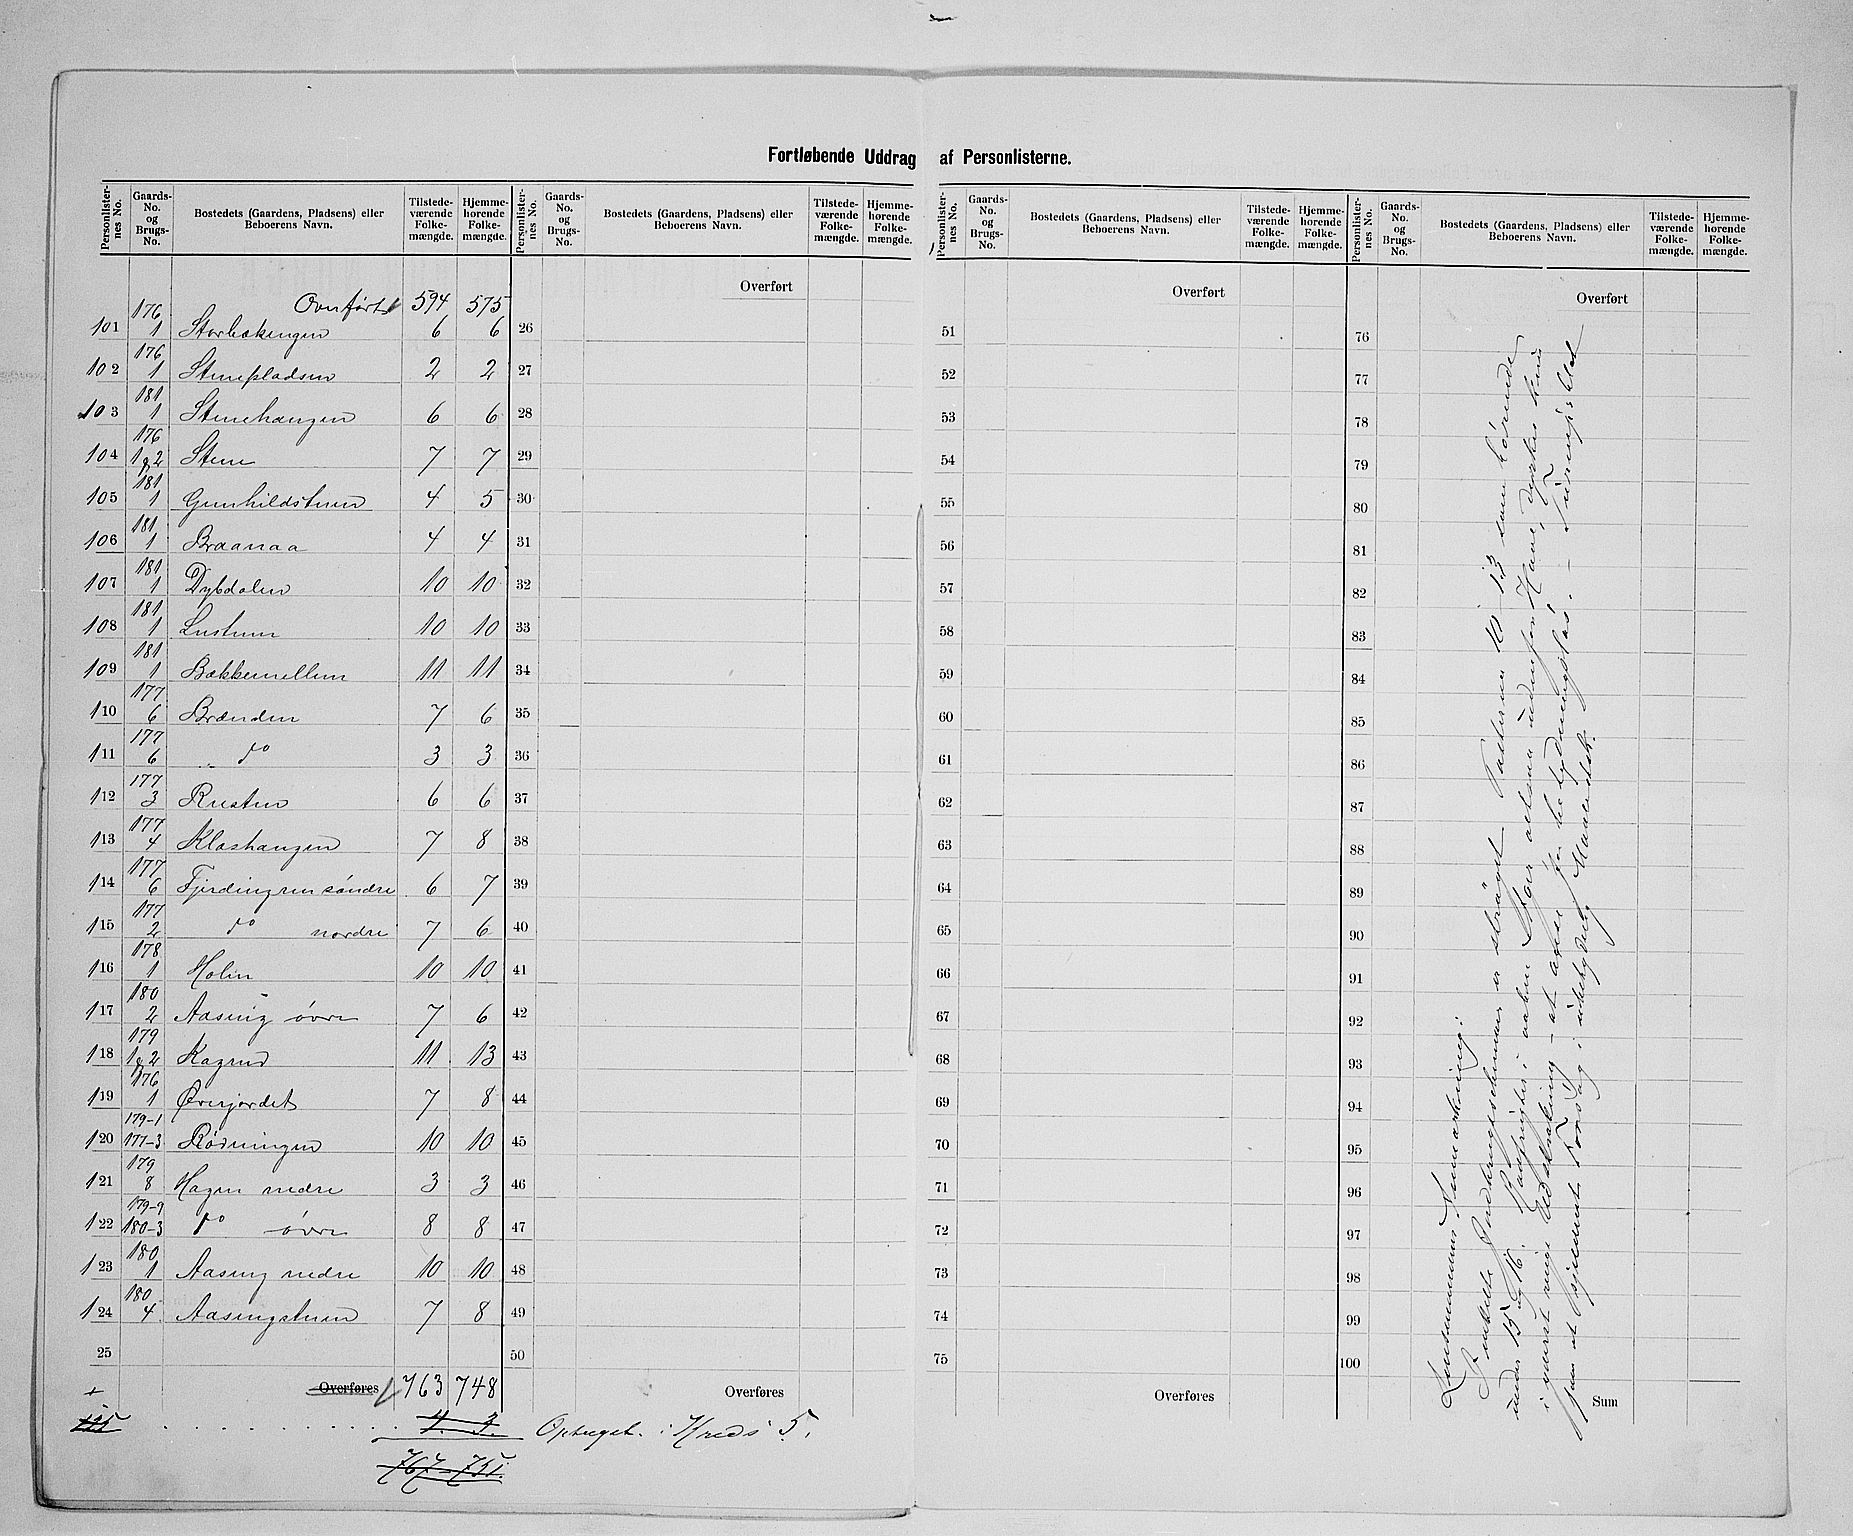 Fortløbende Uddrag af Personlisterne.
Personlisternes No. Gaards-No. og Brugs-No. Bostedets (Gaardens, Pladsens) eller Beboerens Navn. Tilstedeværende Folkemængde. Hjemmehørende Folkemængde.
Personlisternes No. Gaards-No. og Brugs-No. Bostedets (Gaardens, Pladsens) eller Beboerens Navn. Tilstedeværende Folkemængde. Hjemmehørende Folkemængde.
Personlisternes No. Gaards-No. og Brugs-No. Bostedets (Gaardens, Pladsens) eller Beboerens Navn. Tilstedeværende Folkemængde. Hjemmehørende Folkemængde.
Personlisternes No. Gaards-No. og Brugs-No. Bostedets (Gaardens, Pladsens) eller Beboerens Navn. Tilstedeværende Folkemængde. Hjemmehørende Folkemængde.
Overført 594 575 Overført Overført Overført
101 176 1 Storbækengen 6 6 26 51 76
102 176 1 Stenepladsen 2 2 27 52 77
103 181 1 Stenehaugen 6 6 28 53 78
104 176 1 & 2 Stene 7 7 29 54 79
105 181 1 Gunhildstuen 4 5 30 55 80
106 181 1 Braanaa 4 4 31 56 81
107 181 1 Dybdalen 10 10 32 57 82
108 181 1 Lustuen 10 10 33 58 83
109 181 1 Bækkemellem 11 11 34 59 84
110 177 6 Brænden 7 6 35 60 85
111 177 6 " do 3 3 36 61 86
112 177 3 Rusten 6 6 37 62 87
113 177 4 Klashaugen 7 8 38 63 88
114 177 6 Fjerdingren söndre 6 7 39 64 89
115 177 2 do nordre 7 6 40 65 90
116 178 1 Holen 10 10 41 66 91
117 180 2 Aaseng övre 7 6 42 67 92
118 179 1 & 2 Kagrud 11 13 43 68 93
119 176 1 Øverjordet 7 8 44 69 94
120 179-1 177-3 Rödningen 10 10 45 70 95
121 179 8 Hagen nedre 3 3 46 71 96
122 179-9 180-3 do övre 8 8 47 72 97
123 180 1 Aaseng nedre 10 10 48 73 98
124 180 4 Aasengstuen 7 8 49 74 99
25 50 75 100
Overføres 763 748 Overføres Overføres Sum
125 4. 3. Optaget i Kreds 5.
767 - 751.
Lensmannens Anmærkning:
I enkelte Jordbrugsskemaer er ströget Tallerne 10 13 som hörende
under 15 og 16. i aaben Ager altsaa udenfor Have, dyrkes kun
i yderst ringe Udstrækning - at anse for betydningslös. -